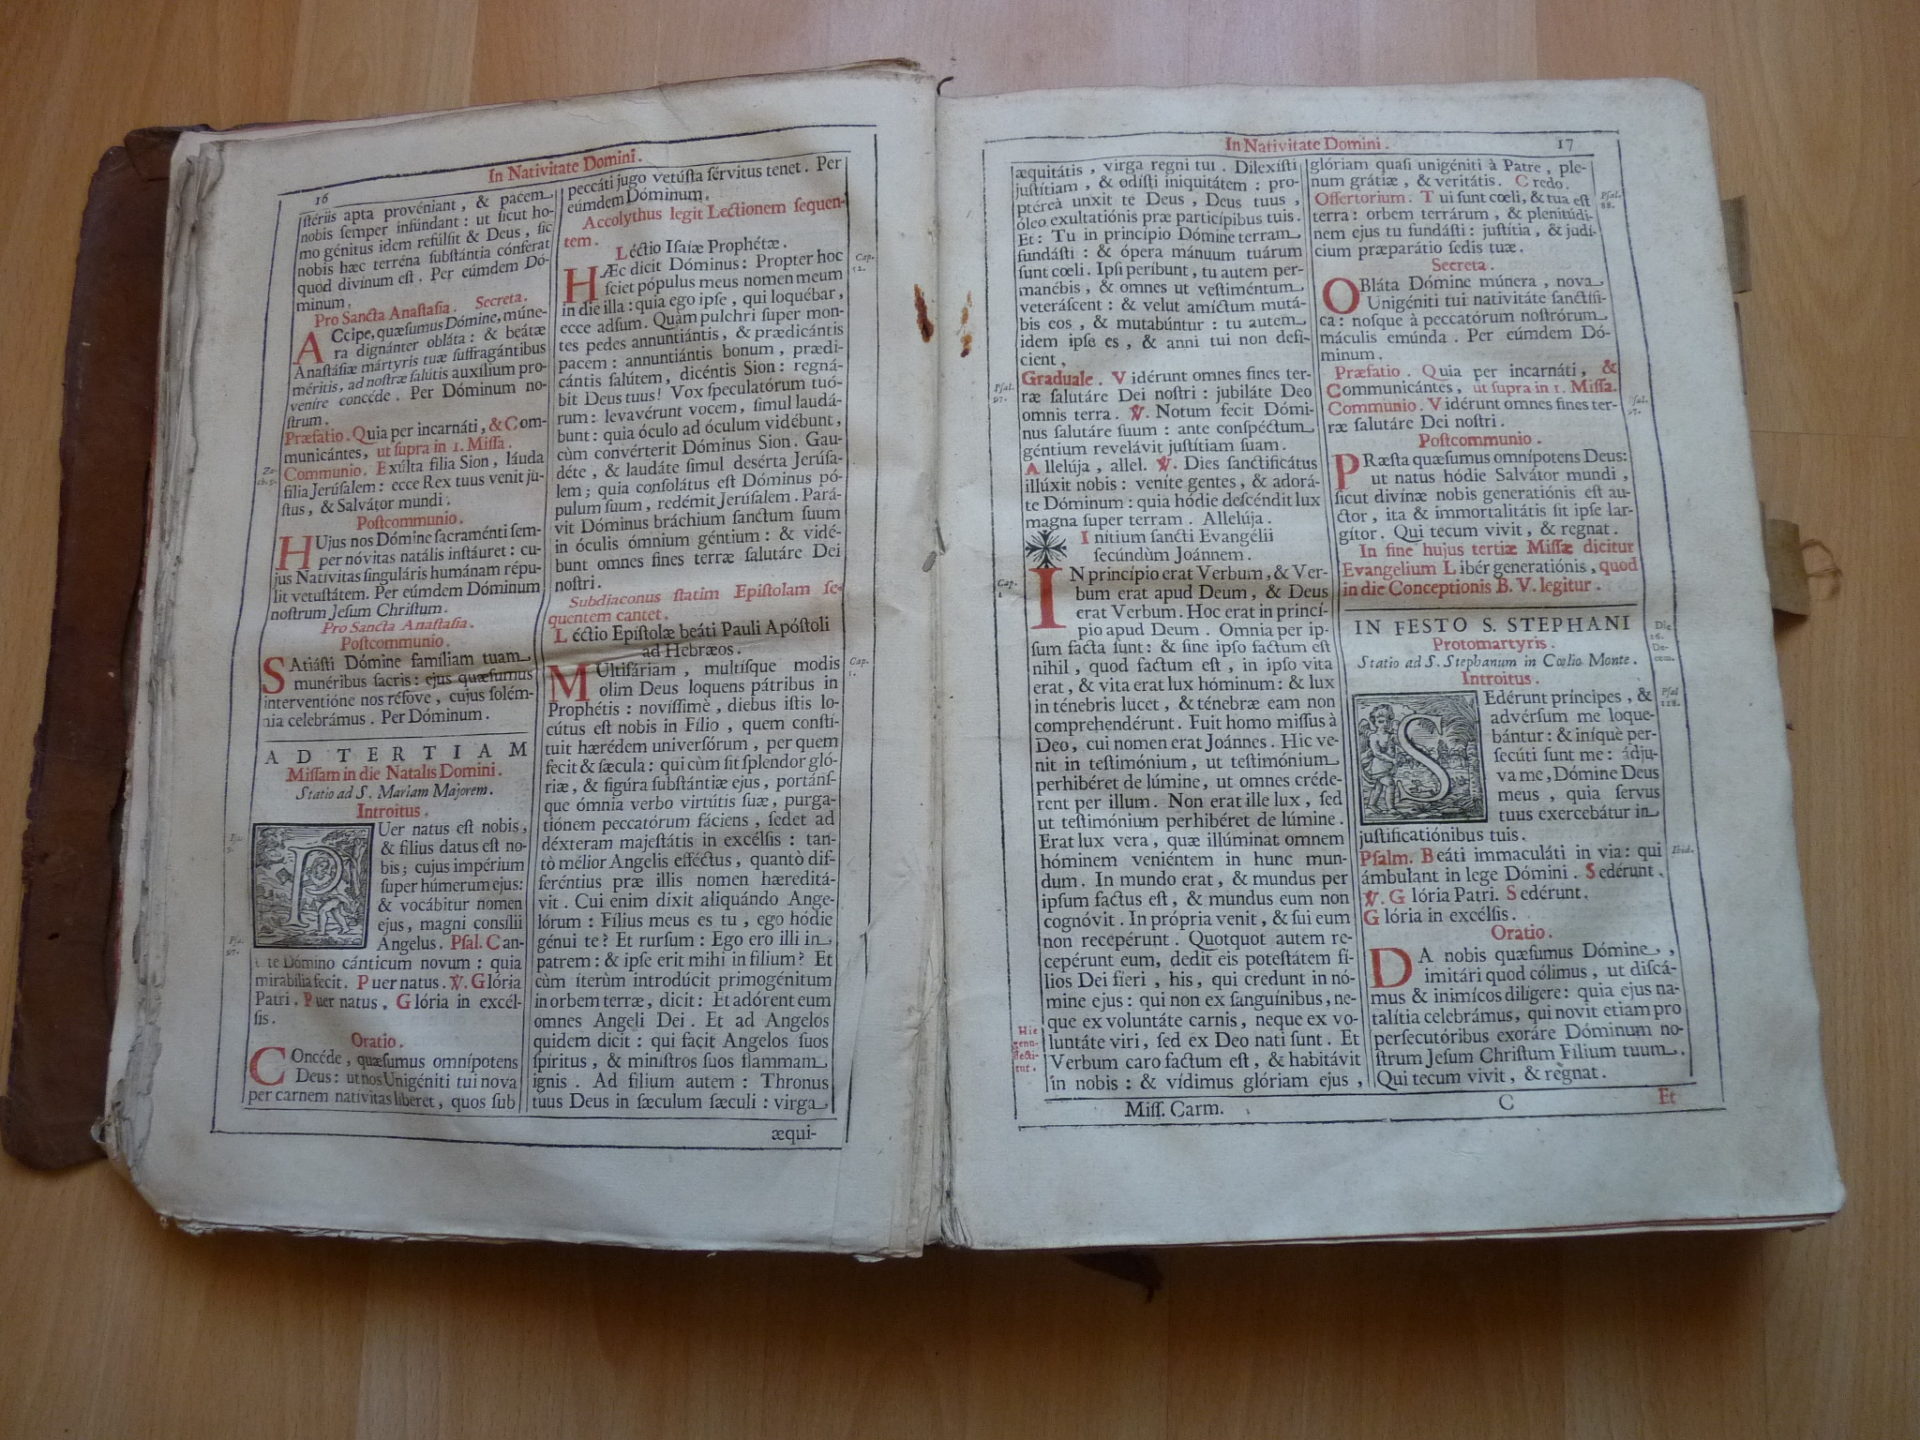 16
In Nativitate Domini.
ſteriis apta provéniant, & pacem
nobis ſemper infúndant: ut ſicut ho-
mo génitus idem refúlſit & Deus, ſic
nobis hæc terréna ſubſtántia cónferat
quod divínum eſt. Per eúmdem Dó-
minum.
Pro Sancta Anaſtaſia. Secreta.
ACcipe, quæſumus Dómine, múne-
ra dignánter obláta: & beátæ
Anaſtáſiæ mártyris tuæ ſuffragántibus
méritis, ad noſtræ ſalútis auxílium pro-
veníre concéde. Per Dóminum no-
ſtrum.
Præfatio. Quia per incarnáti, & Com-
municántes, ut ſupra in 1. Miſſa.
Communio. Exúlta filia Sion, láuda
filia Jerúſalem: ecce Rex tuus venit ju-
ſtus, & Salvátor mundi.
Poſtcommunio.
HUjus nos Dómine ſacraménti ſem-
per nóvitas natális inſtáuret: cu-
jus Nativitas ſinguláris humánam répu-
lit vetuſtátem. Per eúmdem Dóminum
noſtrum Jeſum Chriſtum.
Pro Sancta Anaſtaſia.
Poſtcommunio.
SAtiáſti Dómine famíliam tuam
munéribus ſacris: ejus quæſumus
interventióne nos réfove, cujus ſolém-
nia celebrámus. Per Dóminum.
AD TERTIAM
Miſſam in die Natalis Domini.
Statio ad S. Mariam Majorem.
Introitus.
PUer natus eſt nobis,
& filius datus eſt no-
bis; cujus impérium
ſuper húmerum ejus:
& vocábitur nomen
ejus, magni consílii
Angelus. Pſal. Can-
te Dómino cánticum novum: quia
mirabília fecit. Puer natus. ℣. Glória
Patri. Puer natus, Glória in excél-
ſis.
Oratio.
COncéde, quæſumus omnípotens
Deus: ut nos Unigéniti tui nova
per carnem nativitas líberet, quos ſub
peccáti jugo vetúſta ſérvitus tenet. Per
eúmdem Dóminum.
Accolythus legit Lectionem ſequen-
tem.
Léctio Iſaiæ Prophétæ.
Cap.
52.
HÆc dicit Dóminus: Propter hoc
ſciet pópulus meus nomen meum
in die illa: quia ego ipſe, qui loquébar,
ecce adſum. Quàm pulchri ſuper mon-
tes pedes annuntiántis, & prædicántis
pacem: annuntiántis bonum, prædi-
cántis ſalútem, dicéntis Sion: regná-
bit Deus tuus! Vox ſpeculatórum tuó-
rum: levavérunt vocem, ſimul laudá-
bunt: quia óculo ad óculum vidébunt,
cùm convérterit Dóminus Sion. Gau-
déte, & laudáte ſimul desérta Jerúſa-
lem; quia conſolátus eſt Dóminus pó-
pulum ſuum, redémit Jerúſalem. Pará-
vit Dóminus bráchium ſanctum ſuum
in óculis ómnium géntium: & vidé-
bunt omnes fines terræ ſalutáre Dei
noſtri.
Subdiaconus ſtatim Epiſtolam ſe-
quentem cantet.
Léctio Epíſtolæ beáti Pauli Apóſtoli
ad Hebræos.
Cap.
1.
MUltifáriam, multíſque modis
olim Deus loquens pátribus in
Prophétis: novíſſimè, diebus iſtis lo-
cútus eſt nobis in Fílio, quem conſti-
tuit hærédem univerſórum, per quem
fecit & ſæcula: qui cùm ſit ſplendor gló-
riæ, & figúra ſubſtántiæ ejus, portánſ-
que ómnia verbo virtútis ſuæ, purga-
tiónem peccatórum fáciens, ſedet ad
déxteram majeſtátis in excélſis: tan-
tò mélior Angelis efféctus, quantò dif-
feréntius præ illis nomen hæreditá-
vit. Cui enim dixit aliquándo Ange-
lórum: Fílius meus es tu, ego hódie
génui te? Et rurſum: Ego ero illi in
patrem: & ipſe erit mihi in fílium? Et
cùm íterùm introdúcit primogénitum
in orbem terræ, dicit: Et adórent eum
omnes Angeli Dei. Et ad Angelos
quidem dicit: qui facit Angelos ſuos
ſpíritus, & miniſtros ſuos flammam
ignis. Ad filium autem: Thronus
tuus Deus in ſæculum ſæculi: virga
æqui-
In Nativitate Domini.
17
æquitátis, virga regni tui. Dilexíſti
juſtítiam, & odíſti iniquitátem: pro-
ptéreà unxit te Deus, Deus tuus,
óleo exultatiónis præ particípibus tuis.
Et: Tu in princípio Dómine terram
fundáſti: & ópera mánuum tuárum
ſunt cœli. Ipſi períbunt, tu autem per-
manébis, & omnes ut veſtiméntum
veteráſcent: & velut amíctum mutá-
bis eos, & mutabúntur: tu autem
idem ipſe es, & anni tui non defi-
cient.
Pſal.
97.
Graduale. Vidérunt omnes fines ter-
ræ ſalutáre Dei noſtri: jubiláte Deo
omnis terra. ℣. Notum fecit Dómi-
nus ſalutáre ſuum: ante conſpéctum
géntium revelávit juſtítiam ſuam.
Allelúja, allel. ℣. Dies ſanctificátus
illúxit nobis: venite gentes, & adorá-
te Dóminum: quia hódie deſcéndit lux
magna ſuper terram. Allelúja.
Initium ſancti Evangélii
ſecúndùm Joánnem.
Cap.
1.
IN princípio erat Verbum, & Ver-
bum erat apud Deum, & Deus
erat Verbum. Hoc erat in princí-
pio apud Deum. Omnia per ip-
ſum facta ſunt: & ſine ipſo factum eſt
nihil, quod factum eſt, in ipſo vita
erat, & vita erat lux hóminum: & lux
in ténebris lucet, & ténebræ eam non
comprehendérunt. Fuit homo miſſus à
Deo, cui nomen erat Joánnes. Hic ve-
nit in teſtimónium, ut teſtimónium
perhibéret de lúmine, ut omnes créde-
rent per illum. Non erat ille lux, ſed
ut teſtimónium perhibéret de lúmine.
Erat lux vera, quæ illúminat omnem
hóminem veniéntem in hunc mun-
dum. In mundo erat, & mundus per
ipſum factus eſt, & mundus eum non
cognóvit. In própria venit, & ſui eum
non recepérunt. Quotquot autem re-
cepérunt eum, dedit eis poteſtátem fí-
lios Dei fíeri, his, qui credunt in nó-
mine ejus: qui non ex ſanguínibus, ne-
que ex voluntáte carnis, neque ex vo-
luntáte viri, ſed ex Deo nati ſunt. Et
Verbum caro factum eſt, & habitávit
in nobis: & vídimus glóriam ejus,
Hic
genu-
flecti-
tur.
glóriam quaſi unigéniti à Patre, ple-
num grátiæ, & veritátis. Credo.
Pſal.
88.
Offertorium. Tui ſunt cœli, & tua eſt
terra: orbem terrárum, & plenitúdi-
nem ejus tu fundáſti: juſtítia, & judi-
cium præparátio ſedis tuæ.
Secreta.
OBláta Dómine múnera, nova
Unigéniti tui nativitáte ſanctífi-
ca: noſque à peccatórum noſtrórum
máculis emúnda. Per eúmdem Dó-
minum.
Præfatio. Quia per incarnáti, &
Communicántes, ut ſupra in 1. Miſſa.
Pſal.
97.
Communio. Vidérunt omnes fines ter-
ræ ſalutáre Dei noſtri.
Poſtcommunio.
PRæſta quæſumus omnípotens Deus:
ut natus hódie Salvátor mundi,
ſicut divínæ nobis generatiónis eſt au-
ctor, ita & immortalitátis ſit ipſe lar-
gítor. Qui tecum vivit, & regnat.
In fine hujus tertiæ Miſſæ dicitur
Evangelium Libér generatiónis, quod
in die Conceptionis B. V. legitur.
IN FESTO S. STEPHANI
Die
26.
De-
cem.
Protomartyris.
Statio ad S. Stephanum in Cœlio Monte.
Introitus.
Pſal
118.
SEdérunt príncipes, &
advérſum me loque-
bántur: & iníquè per-
ſecúti ſunt me: ádju-
va me, Dómine Deus
meus, quia ſervus
tuus exercebátur in
juſtificatiónibus tuis.
Pſalm. Beáti immaculáti in via: qui
ámbulant in lege Dómini. Sedérunt.
Ibid.
℣. Glória Patri. Sedérunt.
Glória in excélſis.
Oratio.
DA nobis quæſumus Dómine,
imitári quod cólimus, ut diſcá-
mus & inimícos dilígere: quia ejus na-
talítia celebrámus, qui novit etiam pro
perſecutóribus exoráre Dóminum no-
ſtrum Jeſum Chriſtum Filium tuum.
Qui tecum vivit, & règnat.
Miſſ. Carm.
C
Et